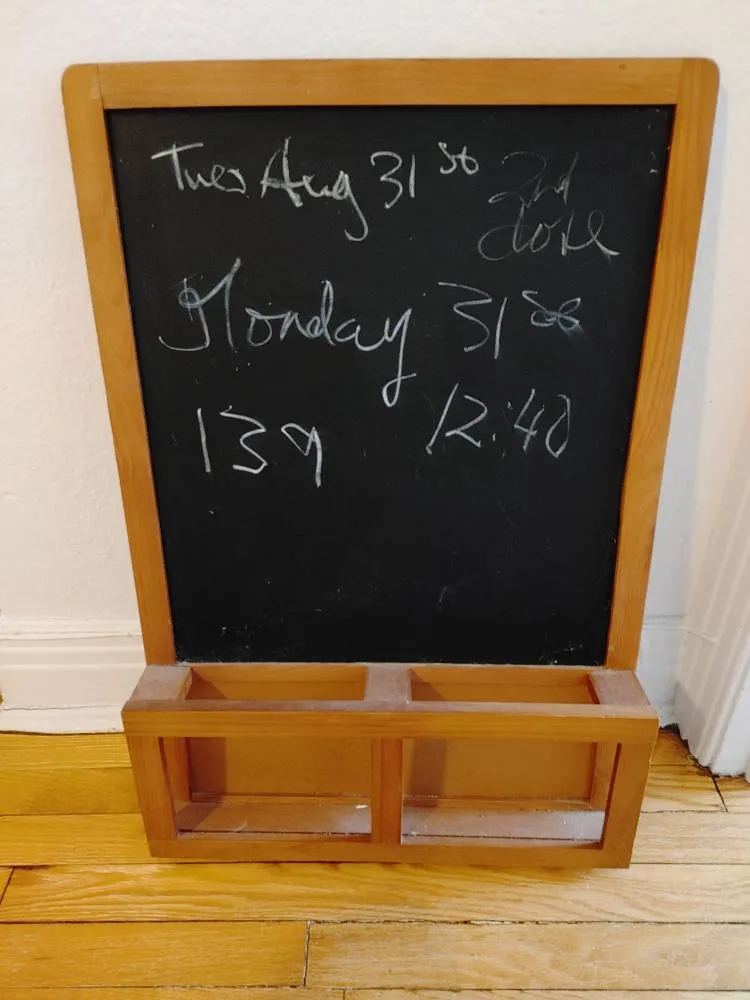 Tues Aug 31st 2nd
dose
Monday 31st
139 12:40